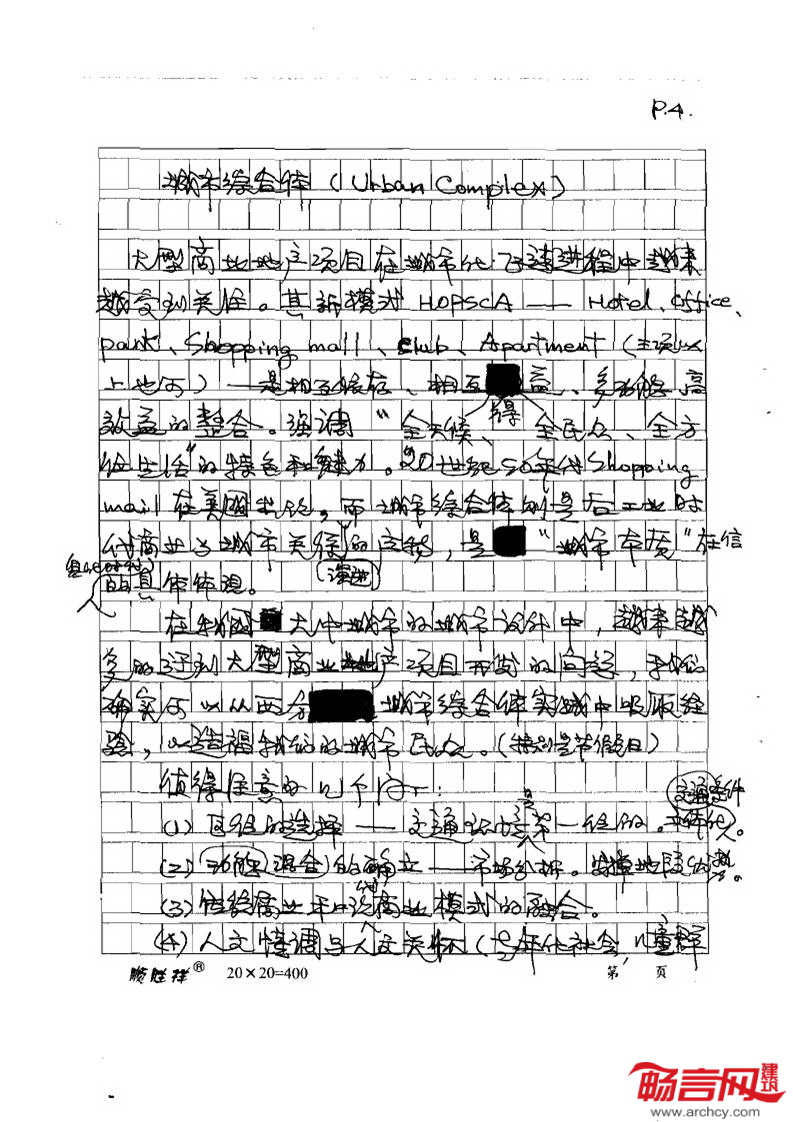 P.4.
城市综合体（Urban Complex）
大型商业地产项目在城市化飞速进程中越来
越受到关注。其新模式 HOPSCA —— Hotel、Office、
park、Shopping mall、club、Apartment（主项以
上也可）—是相互依存、相互益、多功能、高
效益的整合。强调“全天候、全民众、全方
得
位生活”的特色和魅力。20世纪50年代Shopping
mall在美国出现，而城市综合体则是后工业时
代商业与城市关系的，是“城市本质”在信
演进
的具体体现。
在我国大中城市的城市设计中，越来越
多的遇到大型商业地产项目开发的问题，我们
确实可以从西方城市综合体实践中吸取经
验，以造福我们的城市民众。（特别是节假日）
值得注意的几个问：
交通条件
是
(1) 区位的选择——交通第一位的。立体化。
(2) 功能混合的确立——市场分析。发挥地段
(3) 传统商业和现代商业模式的融合。
(4) 人文情调与人文关怀（老年化社会，
顺胜祥® 20×20=400 第 页
畅言网 建筑
www.archcy.com